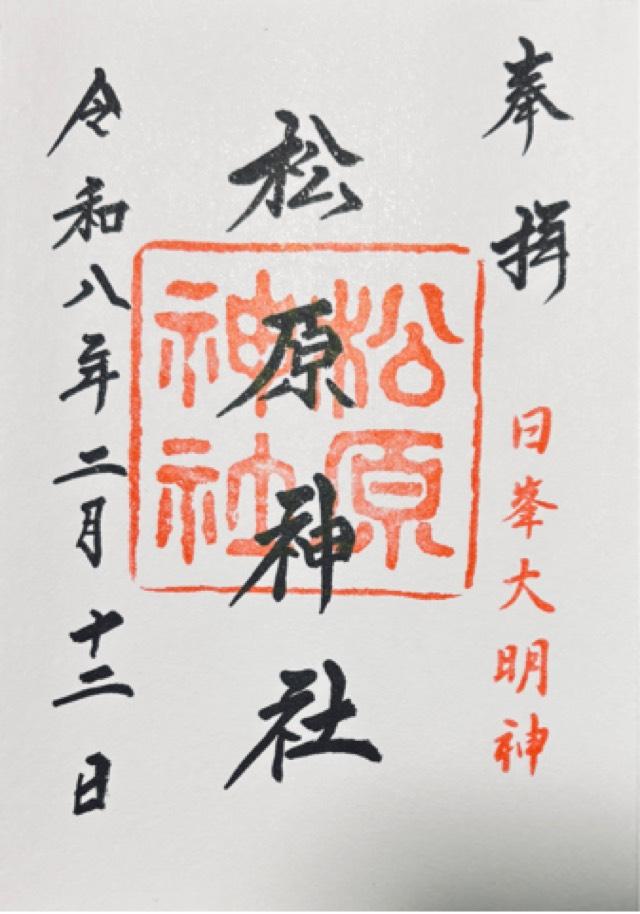 奉拝
日峯大明神
松原神社
松原神社
令和八年二月十二日